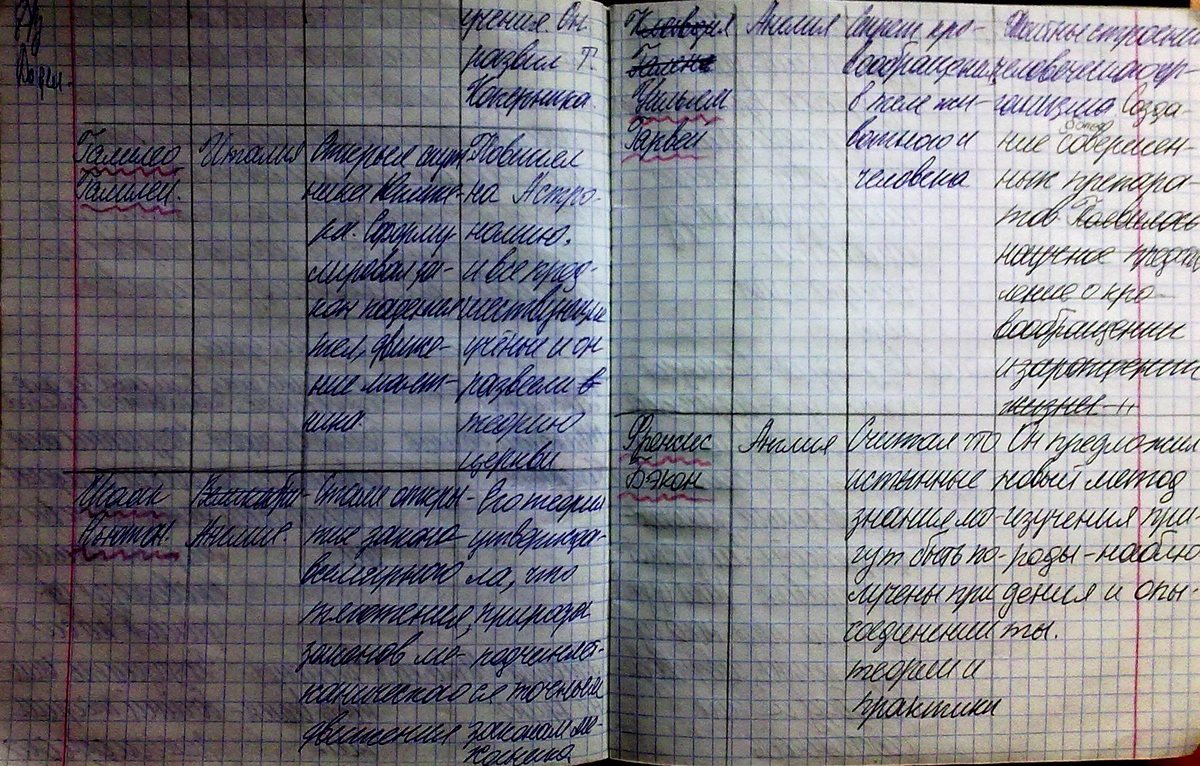 учения. Он
развил т.
Коперника
Галилео
Галилей.
Италия
Открыл спут
ника Юпите-
ра. Сформу
лировал за-
кон падения
тел, движе-
ние маят-
ника
Повлиял
на Астро-
номию.
и все пред-
шествующие
учёные и он
развеели в
теорию
церкви
Исаак
Ньютон.
Великобри-
Англия
Стали откры-
тие закона
всемирного
тяготения,
законов ме-
ханического
движения
Его теория
утвержда-
ла, что
природа
подчиняет-
ся точным
законам ме-
ханика
Галена
Уильям
Гарвей
Англия
Секрет кро-
вообращения
в теле жи-
вотного и
человека
строения
человеческого ор-
ганизма. Созда-
ние совершен-
ных препара-
тов. Появилось
научное представ
ление о кро-
вообращении
и зарождении
жизни
Френсис
Бэкон
Англия
Считал то
истынные
знание мо-
гут быть по-
лучены при
соединении
теории и
практики
Он предложил
новый метод
изучения при
роды - наблю
дения и опы-
ты.